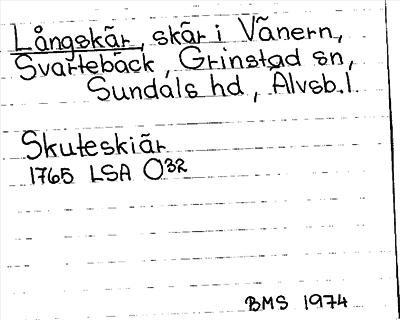 Långskär, skär i Vänern,
Svartebäck, Grinstad sn,
Sundals hd, Älvsb.l.
Skuteskiär
1765 LSA O32
BMS 1974